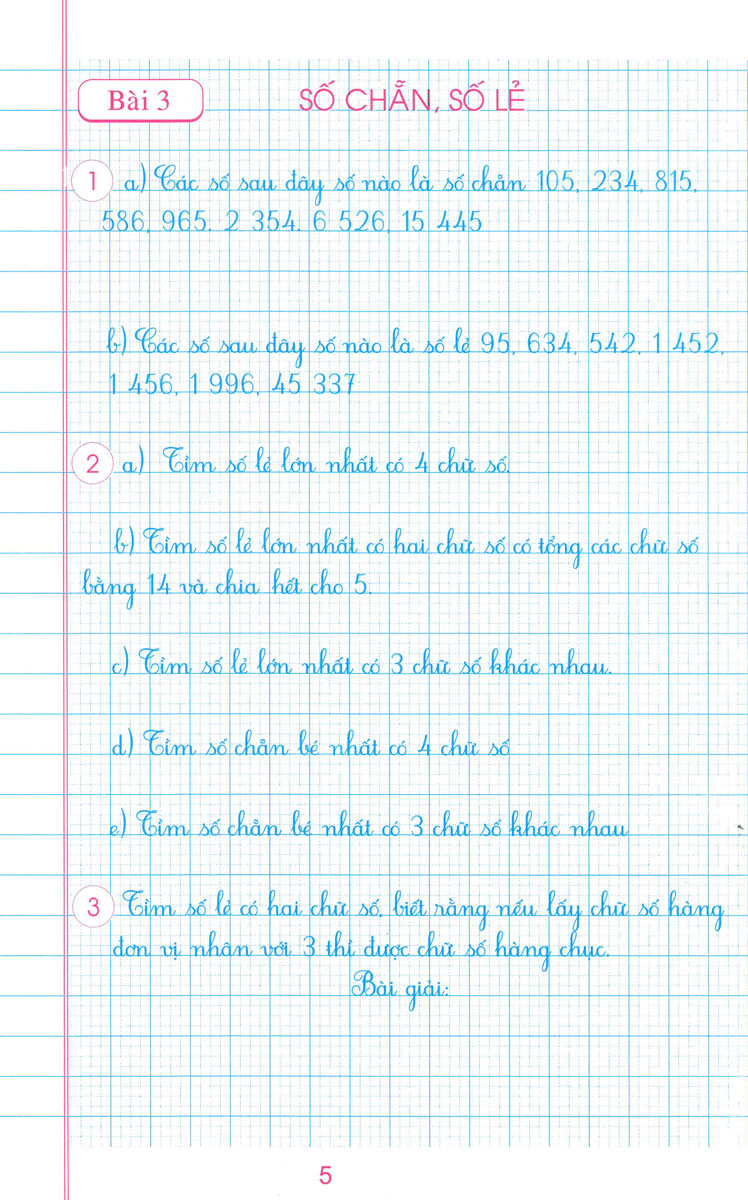 Bài 3
SỐ CHẴN, SỐ LẺ
1 a) Các số sau đây số nào là số chẵn 105, 234, 815,
586, 965, 2 354, 6 526, 15 445
b) Các số sau đây số nào là số lẻ 95, 634, 542, 1 452,
1 456, 1 996, 45 337
2 a) Tìm số lẻ lớn nhất có 4 chữ số.
b) Tìm số lẻ lớn nhất có hai chữ số có tổng các chữ số
bằng 14 và chia hết cho 5.
c) Tìm số lẻ lớn nhất có 3 chữ số khác nhau.
d) Tìm số chẵn bé nhất có 4 chữ số
e) Tìm số chẵn bé nhất có 3 chữ số khác nhau
3 Tìm số lẻ có hai chữ số, biết rằng nếu lấy chữ số hàng
đơn vị nhân với 3 thì được chữ số hàng chục.
Bài giải:
5